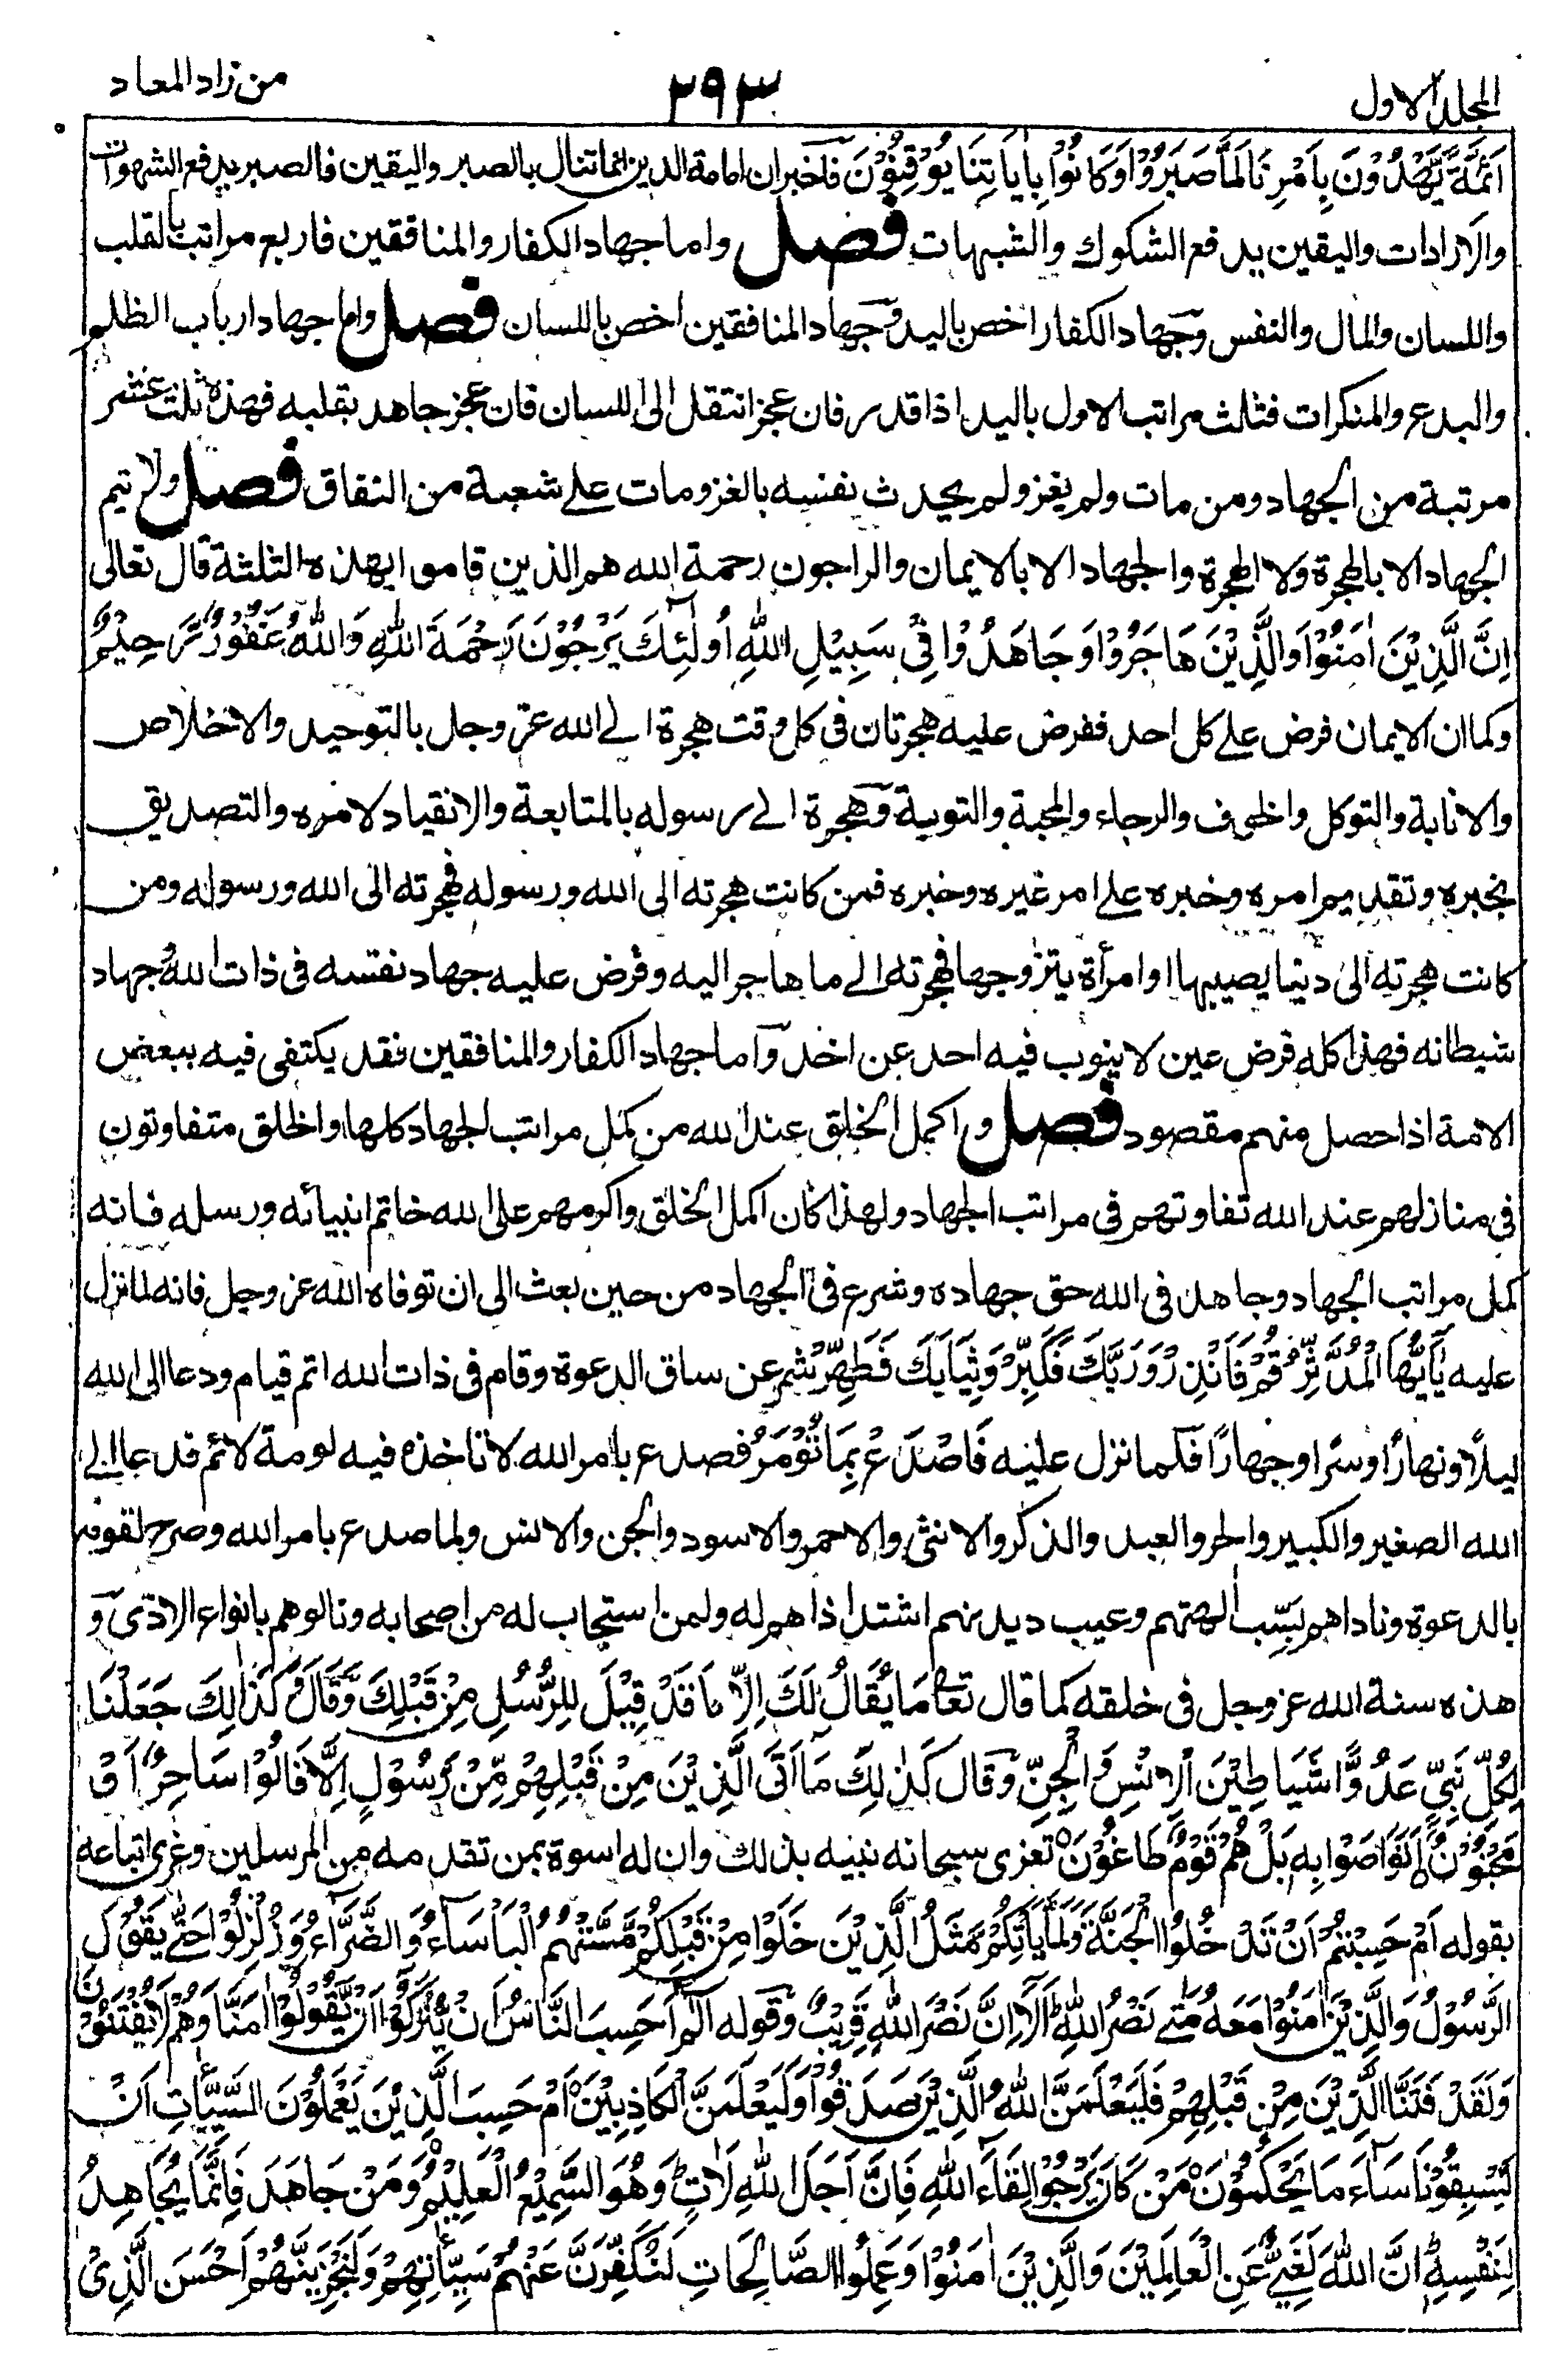 المجلد الاول
٢٩٣
من زاد المعاد
اَئِمَّةً يَّهْدُوْنَ بِاَمْرِنَا لَمَّا صَبَرُوْا وَكَانُوْا بِاٰيَاتِنَا يُوْقِنُوْنَ فاخبر ان امامة الدين انما تنال بالصبر واليقين فالصبر يدفع الشهوات
والارادات واليقين يدفع الشكوك والشبهات فصل واما جهاد الكفار والمنافقين فاربع مراتب بالقلب
واللسان والمال والنفس وجهاد الكفار اخص باليد وجهاد المنافقين اخص باللسان فصل واما جهاد ارباب الظلم
والبدع والمنكرات فثلث مراتب الاول باليد اذا قدر فان عجز انتقل الى اللسان فان عجز جاهد بقلبه فهذه ثلث عشر
مرتبة من الجهاد ومن مات ولم يغز ولم يحدث نفسه بالغزو مات على شعبة من النفاق فصل ولا يتم
الجهاد الا بالهجرة ولا الهجرة والجهاد الا بالايمان والراجون رحمة الله هم الذين قاموا بهذه الثلثة قال تعالى
اِنَّ الَّذِيْنَ اٰمَنُوْا وَالَّذِيْنَ هَاجَرُوْا وَجَاهَدُوْا فِيْ سَبِيْلِ اللّٰهِ اُولٰٓئِكَ يَرْجُوْنَ رَحْمَةَ اللّٰهِ وَاللّٰهُ غَفُوْرٌ رَّحِيْمٌ
وكما ان الايمان فرض على كل احد ففرض عليه هجرتان في كل وقت هجرة الى الله عز وجل بالتوحيد والاخلاص
والانابة والتوكل والخوف والرجاء والمحبة والتوبة وهجرة الى رسوله بالمتابعة والانقياد لامره والتصديق
بخبره وتقديم امره وخبره على امر غيره وخبره فمن كانت هجرته الى الله ورسوله فهجرته الى الله ورسوله ومن
كانت هجرته الى دنيا يصيبها او امرأة يتزوجها فهجرته الى ما هاجر اليه وفرض عليه جهاد نفسه في ذات الله وجهاد
شيطانه فهذا كله فرض عين لا ينوب فيه احد عن احد واما جهاد الكفار والمنافقين فقد يكتفى فيه ببعض
الامة اذا حصل منهم مقصود فصل واكمل الخلق عند الله من كمل مراتب الجهاد كلها والخلق متفاوتون
في منازلهم عند الله تفاوتهم في مراتب الجهاد ولهذا كان اكمل الخلق واكرمهم على الله خاتم انبيائه ورسله فانه
كمل مراتب الجهاد وجاهد في الله حق جهاده وشرع في الجهاد من حين بعث الى ان توفاه الله عز وجل فانه لما نزل
عليه يٰۤاَيُّهَا الْمُدَّثِّرُ قُمْ فَاَنْذِرْ وَرَبَّكَ فَكَبِّرْ وَثِيَابَكَ فَطَهِّرْ شمر عن ساق الدعوة وقام في ذات الله اتم قيام ودعا الى الله
ليلًا ونهارًا وسرًا وجهارًا فلما نزل عليه فَاصْدَعْ بِمَا تُؤْمَرُ فصدع بامر الله لا تاخذه فيه لومة لائم فدعا الى
الله الصغير والكبير والحر والعبد والذكر والانثى والاحمر والاسود والجن والانس ولما صدع بامر الله وصرح لقومه
بالدعوة وناداهم بسب الهتهم وعيب دينهم اشتد اذاهم له ولمن استجاب له من اصحابه ونالوهم بانواع الاذى و
هذه سنة الله عز وجل في خلقه كما قال تعالى مَا يُقَالُ لَكَ اِلَّا مَا قَدْ قِيْلَ لِلرُّسُلِ مِنْ قَبْلِكَ وَقَالَ وَكَذٰلِكَ جَعَلْنَا
لِكُلِّ نَبِيٍّ عَدُوًّا شَيَاطِيْنَ الْاِنْسِ وَالْجِنِّ وقال كَذٰلِكَ مَا اَتَى الَّذِيْنَ مِنْ قَبْلِهِمْ مِّنْ رَّسُوْلٍ اِلَّا قَالُوْا سَاحِرٌ اَوْ
مَجْنُوْنٌ اَتَوَاصَوْا بِهٖ بَلْ هُمْ قَوْمٌ طَاغُوْنَ تعزى سبحانه نبيه بذلك وان له اسوة بمن تقدمه من المرسلين وعزى اتباعه
بقوله اَمْ حَسِبْتُمْ اَنْ تَدْخُلُوا الْجَنَّةَ وَلَمَّا يَاْتِكُمْ مَّثَلُ الَّذِيْنَ خَلَوْا مِنْ قَبْلِكُمْ مَّسَّتْهُمُ الْبَاْسَآءُ وَالضَّرَّآءُ وَزُلْزِلُوْا حَتّٰى يَقُوْلَ
الرَّسُوْلُ وَالَّذِيْنَ اٰمَنُوْا مَعَهٗ مَتٰى نَصْرُ اللّٰهِ اَلَآ اِنَّ نَصْرَ اللّٰهِ قَرِيْبٌ وقوله الٓمّٓ اَحَسِبَ النَّاسُ اَنْ يُّتْرَكُوْٓا اَنْ يَّقُوْلُوْٓا اٰمَنَّا وَهُمْ لَا يُفْتَنُوْنَ
وَلَقَدْ فَتَنَّا الَّذِيْنَ مِنْ قَبْلِهِمْ فَلَيَعْلَمَنَّ اللّٰهُ الَّذِيْنَ صَدَقُوْا وَلَيَعْلَمَنَّ الْكَاذِبِيْنَ اَمْ حَسِبَ الَّذِيْنَ يَعْمَلُوْنَ السَّيِّاٰتِ اَنْ
يَّسْبِقُوْنَا سَآءَ مَا يَحْكُمُوْنَ مَنْ كَانَ يَرْجُوْا لِقَآءَ اللّٰهِ فَاِنَّ اَجَلَ اللّٰهِ لَاٰتٍ وَهُوَ السَّمِيْعُ الْعَلِيْمُ وَمَنْ جَاهَدَ فَاِنَّمَا يُجَاهِدُ
لِنَفْسِهٖ اِنَّ اللّٰهَ لَغَنِيٌّ عَنِ الْعَالَمِيْنَ وَالَّذِيْنَ اٰمَنُوْا وَعَمِلُوا الصَّالِحَاتِ لَنُكَفِّرَنَّ عَنْهُمْ سَيِّاٰتِهِمْ وَلَنَجْزِيَنَّهُمْ اَحْسَنَ الَّذِيْ